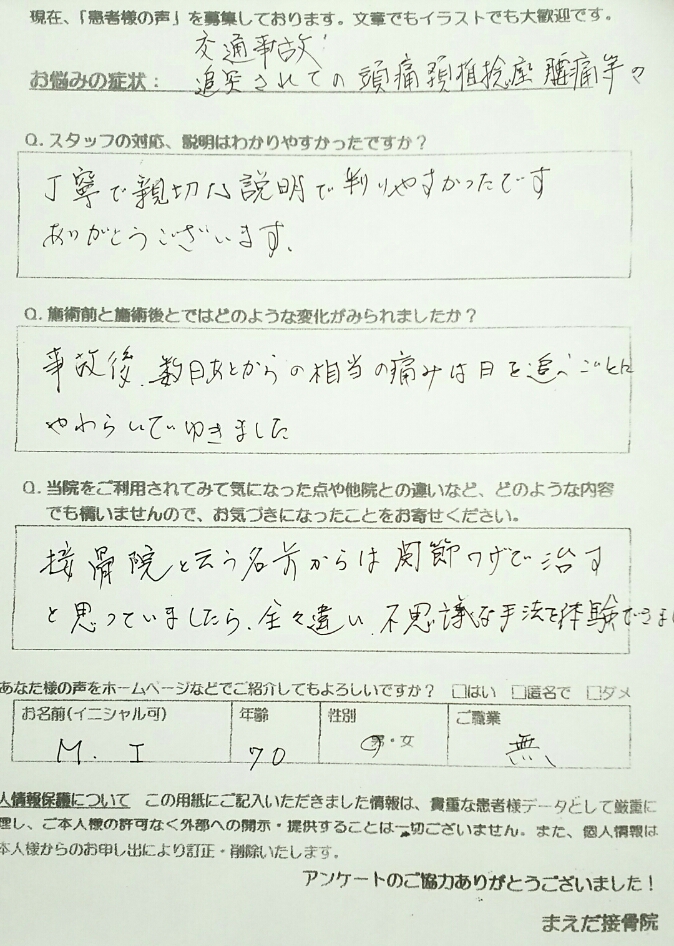 現在、「患者様の声」を募集しております。文章でもイラストでも大歓迎です。
交通事故
お悩みの症状： 追突されての頭痛頚椎捻座腰痛等々
Q. スタッフの対応、説明はわかりやすかったですか？
丁寧で親切な説明で判りやすかったです
ありがとうございます、
Q. 施術前と施術後とではどのような変化がみられましたか？
事故後、数日あとからの相当の痛みは日を追うごとに
やわらいでゆきました
Q. 当院をご利用されてみて気になった点や他院との違いなど、どのような内容
でも構いませんので、お気づきになったことをお寄せください。
接骨院と云う名前からは関節ワザで治す
と思っていましたら、全々違い、不思議な手法を体験できま
あなた様の声をホームページなどでご紹介してもよろしいですか？ □はい □匿名で □ダメ
お名前(イニシャル可) 年齢 性別 ご職業
M. I 70 男・女 無、
人情報保護について この用紙にご記入いただきました情報は、貴重な患者様データとして厳重に
理し、ご本人様の許可なく外部への開示・提供することは一切ございません。また、個人情報は
本人様からのお申し出により訂正・削除いたします。
アンケートのご協力ありがとうございました！
まえだ接骨院